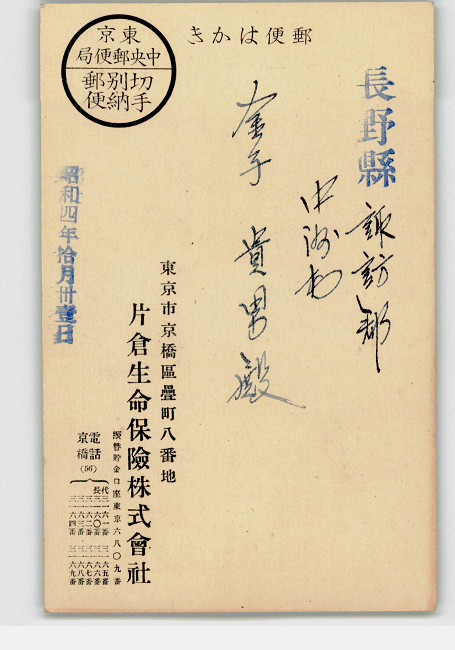 郵便はかき
東京
中央郵便局
切手別納郵便
長野縣
諏訪郡
中洲村
金子貴男殿
昭和四年拾月卅壹日
東京市京橋區疊町八番地
片倉生命保險株式會社
振替貯金口座東京六八〇九番
電話京橋(56)
代表
三一六一番
三一六〇番
三一六二番
三一六三番
三一六四番
三一六五番
三一六六番
三一六七番
三一六八番
三一六九番